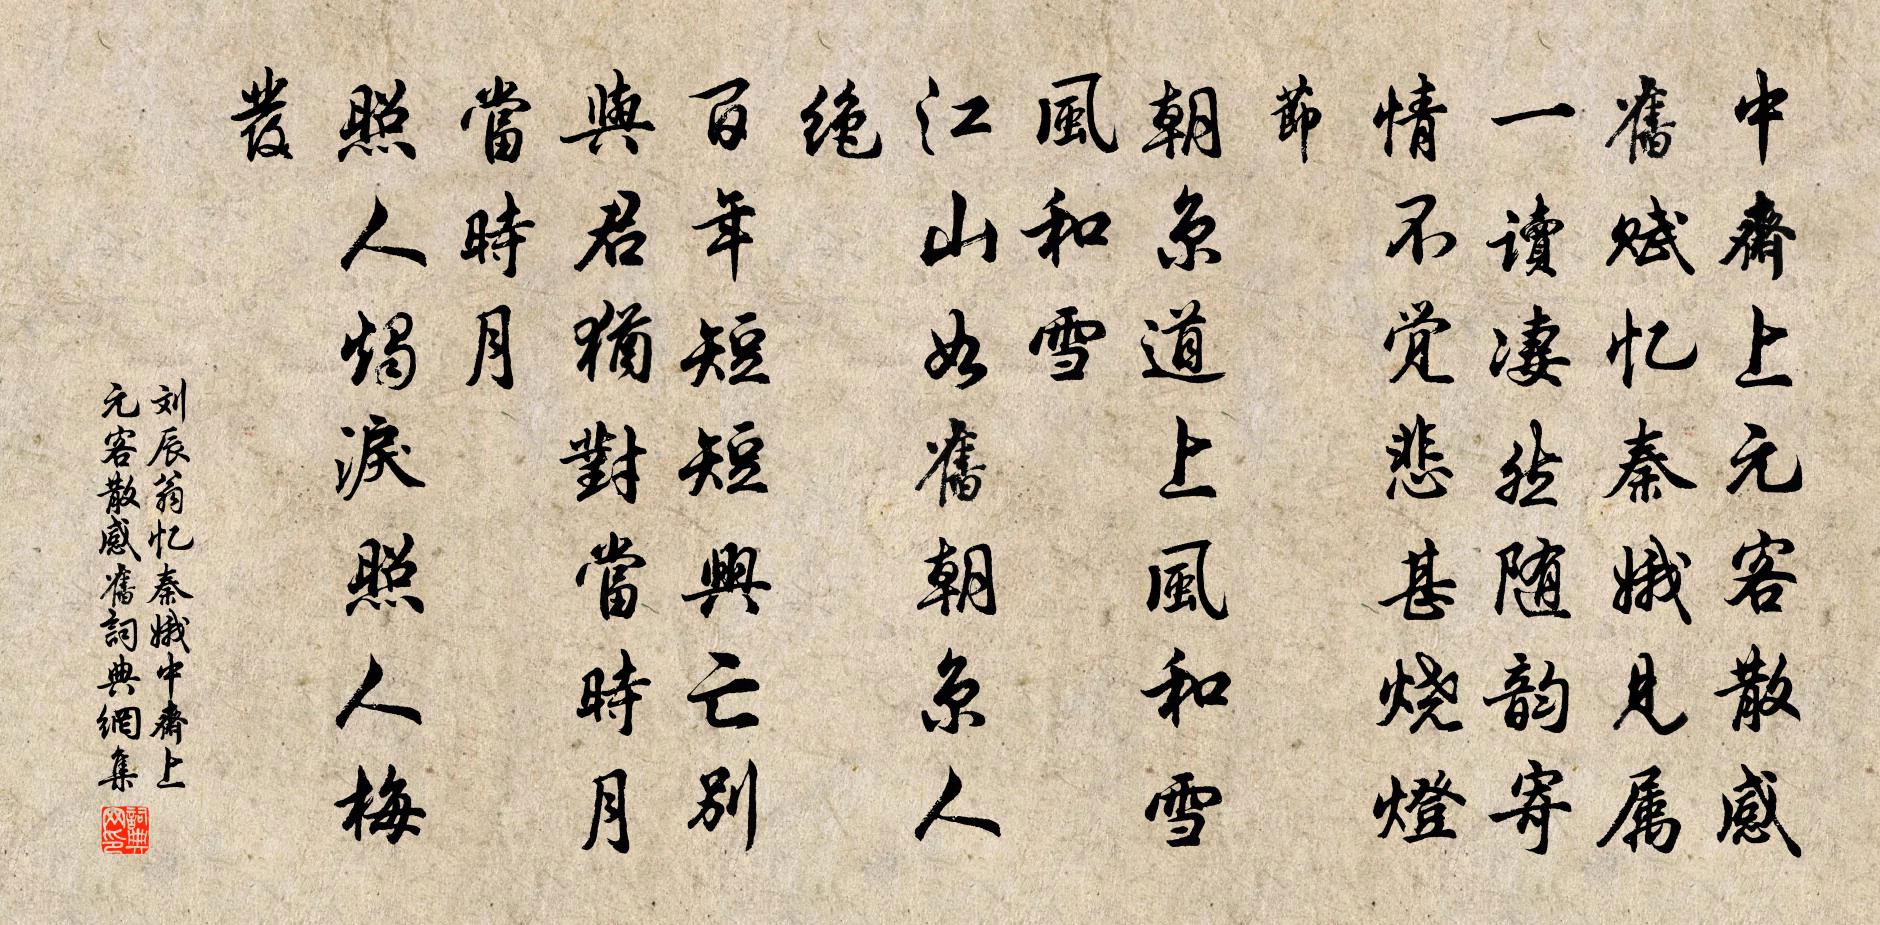 中齋上元客散感
舊赋忆秦娥見属
一讀凄然随韵寄
情不觉悲甚烧燈
節
朝京道上風和雪
風和雪
江山如舊朝京人
绝
百年短短興亡别
與君猶對當時月
當時月
照人燭淚照人梅
發
刘辰翁忆秦娥中齋上
元客散感舊詞典網集
詞典网印